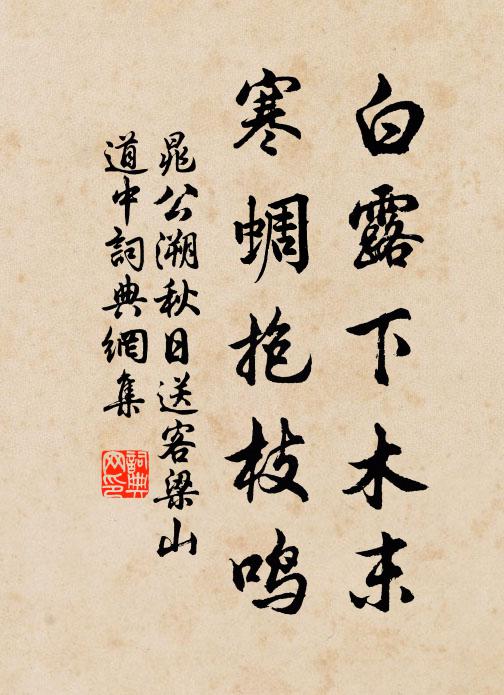 白露下木末
寒蜩抱枝鸣
晁公溯秋日送客梁山
道中詞典網集
詞典
网印